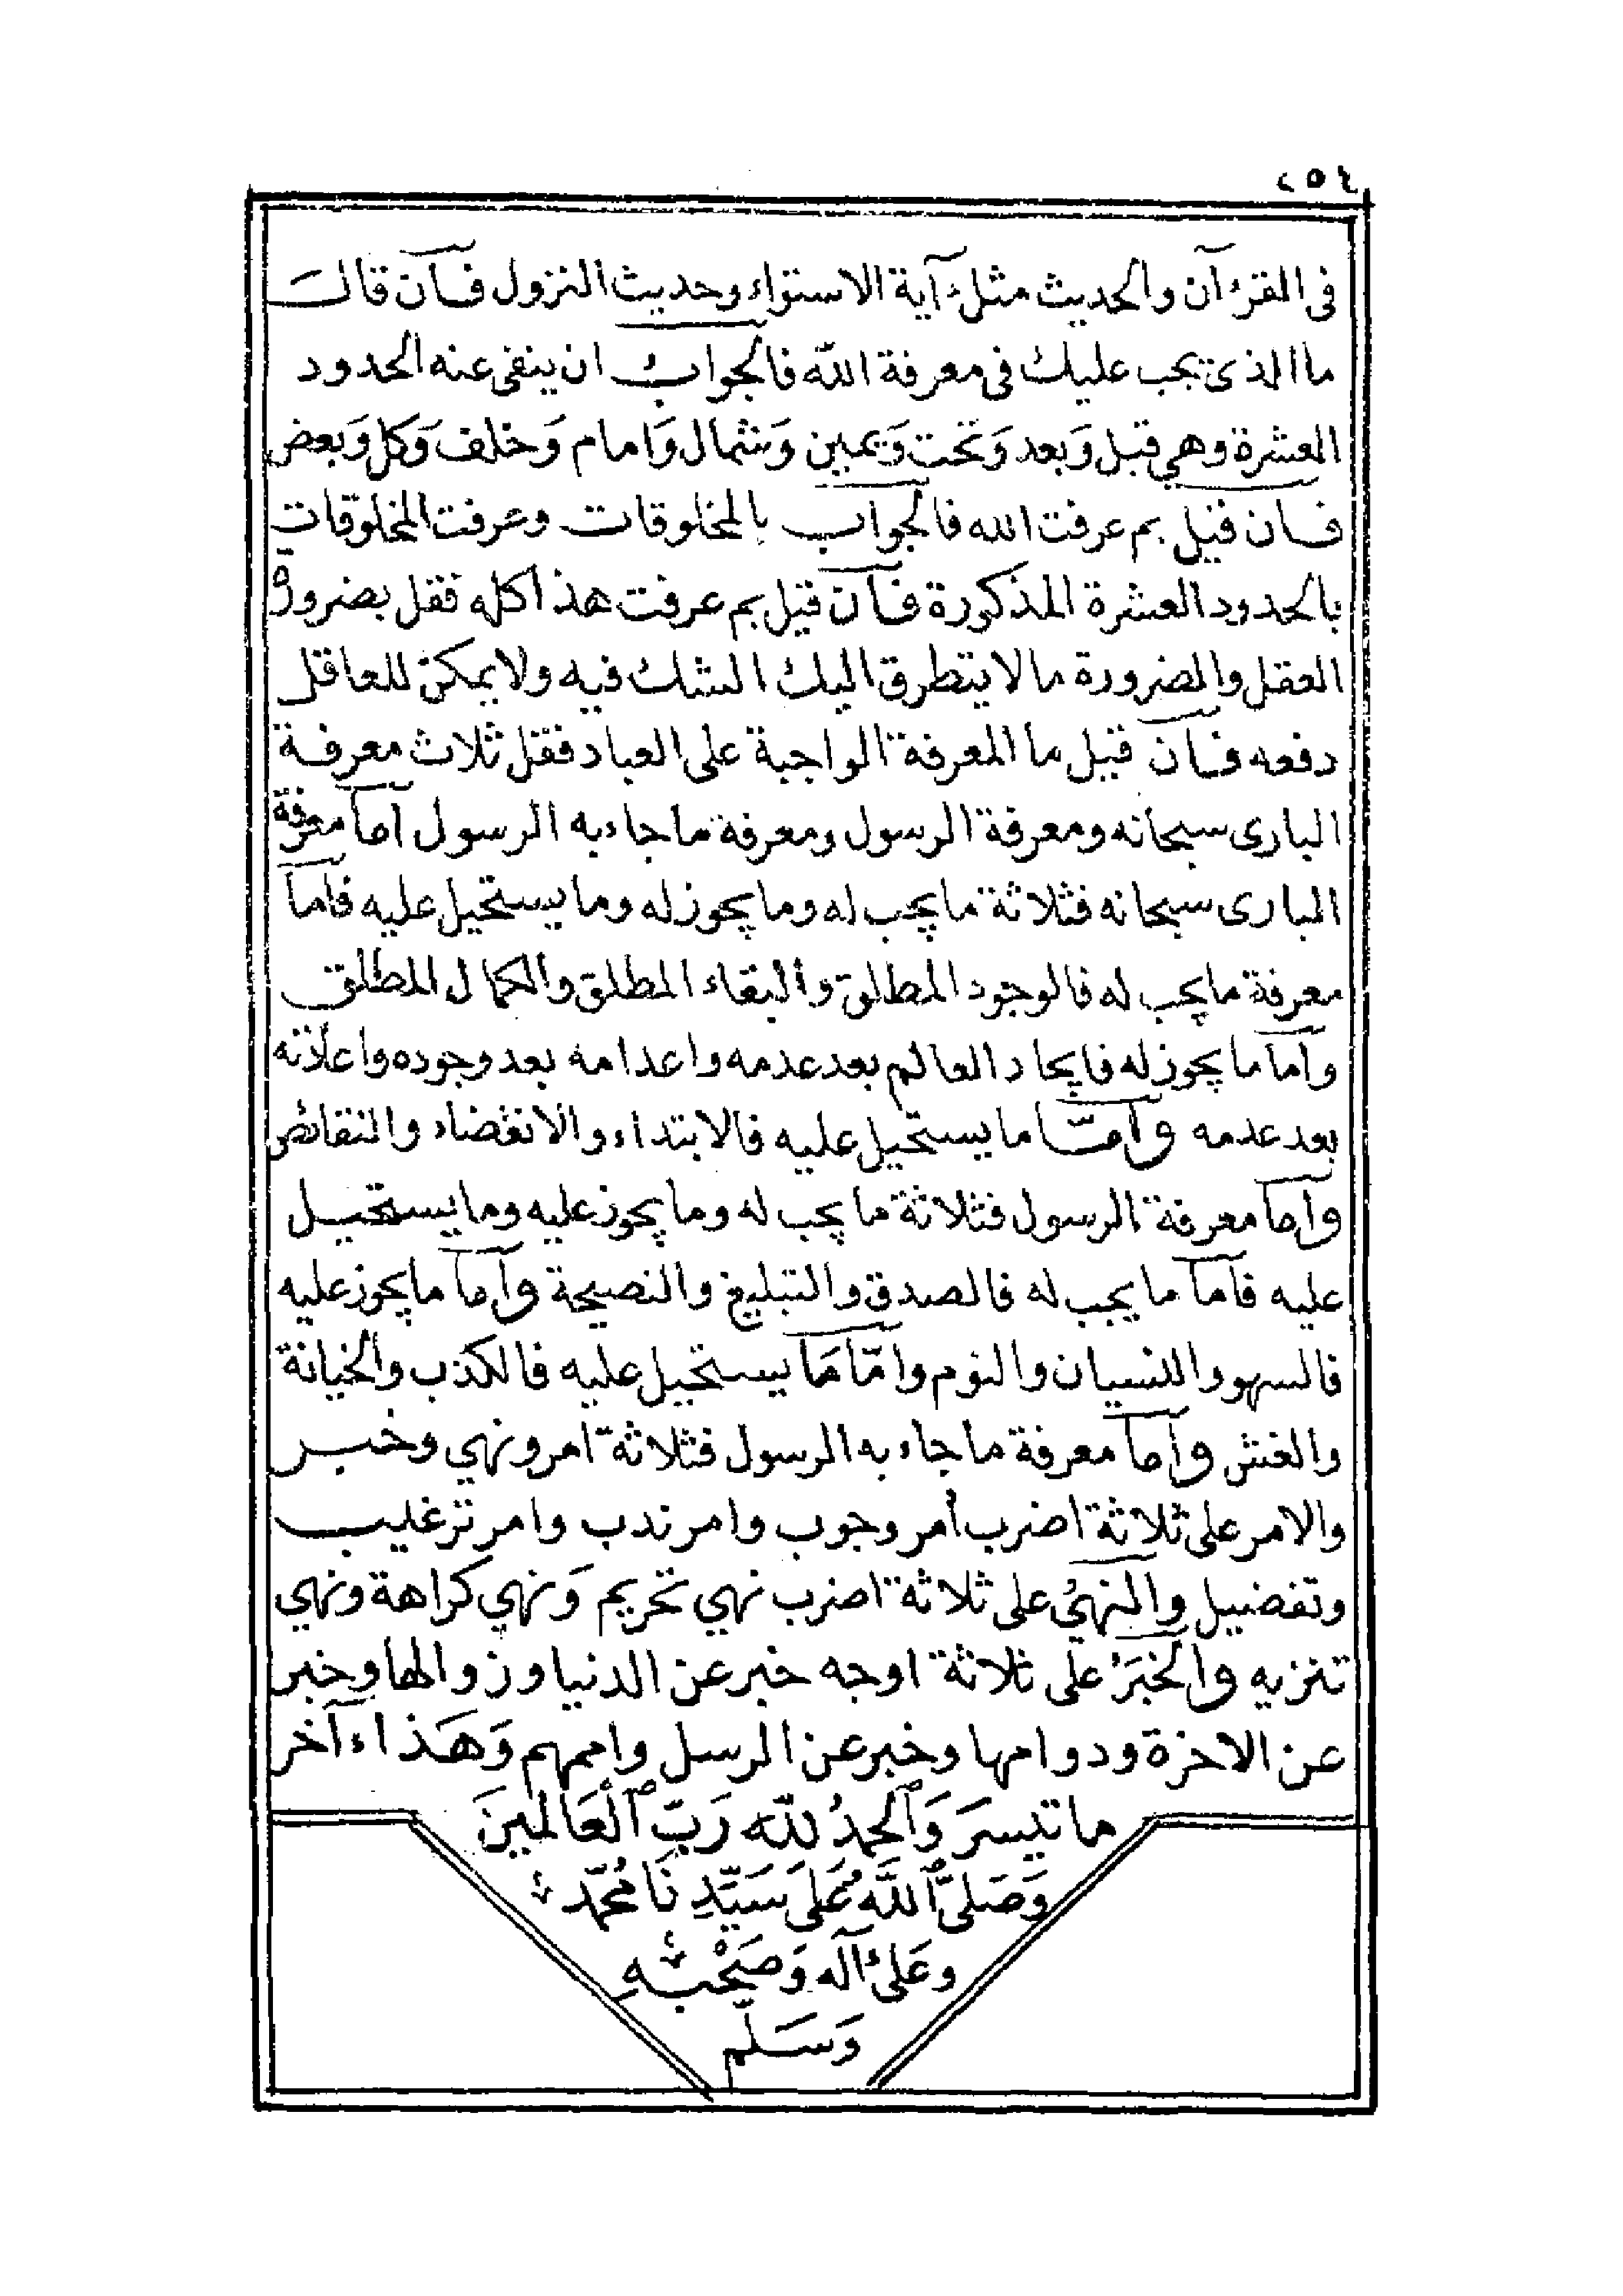 ٢٥٤
فى القرءان والحديث مثل ءاية الاستواء وحديث النزول فان قال
ما الذى يجب عليك فى معرفة الله فالجواب ان ينفى عنه الحدود
العشرة وهي قبل وَبعد وَتحت وَيمين وَشمال وَامام وَخلف وَكل وَبعض
فان قيل بم عرفت الله فالجواب بالمخلوقات وعرفت المخلوقات
بالحدود العشرة المذكورة فان قيل بم عرفت هذا كله فقل بضرورة
العقل والضرورة ما لا يتطرق اليك الشك فيه ولا يمكن للعاقل
دفعه فان قيل ما المعرفة الواجبة على العباد فقل ثلاث معرفة
البارى سبحانه ومعرفة الرسول ومعرفة ما جاء به الرسول اما معرفة
البارى سبحانه فثلاثة ما يجب له وما يجوز له وما يستحيل عليه فاما
معرفة ما يجب له فالوجود المطلق والبقاء المطلق والكمال المطلق
واما ما يجوز له فايجاد العالم بعد عدمه واعدامه بعد وجوده واعادته
بعد عدمه وامّا ما يستحيل عليه فالابتداء والانقضاء والنقائص
واما معرفة الرسول فثلاثة ما يجب له وما يجوز عليه وما يستحيل
عليه فاما ما يجب له فالصدق والتبليغ والنصيحة واما ما يجوز عليه
فالسهو والنسيان والنوم وامّا مَا يستحيل عليه فالكذب والخيانة
والغش واما معرفة ما جاء به الرسول فثلاثة امر ونهي وخبر
والامر على ثلاثة اضرب أمر وجوب وامر ندب وامر ترغيب
وتفضيل والنهيُ على ثلاثة اضرب نهي تحريم وَنهي كراهة ونهي
تنزيه والخبَرُ على ثلاثة اوجه خبر عن الدنيا وزوالها وخبر
عن الاخرة ودوامها وخبر عن الرسل واممهم وَهَذا ءاخر
ما تيسرَ وَٱلحمدُ للّه رَبّ ٱلْعَالمِينَ
وَصَلىَّ ٱللَّهُ عَلَى سَيّدِنَا مُحمّد
وعَلىٰ ءاله وَصَحْبهِ
وَسَلّم